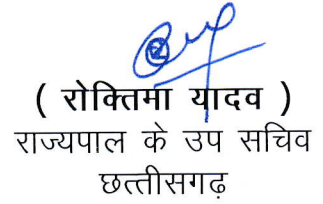 ( रोक्तिमा यादव )
राज्यपाल के उप सचिव
छत्तीसगढ़